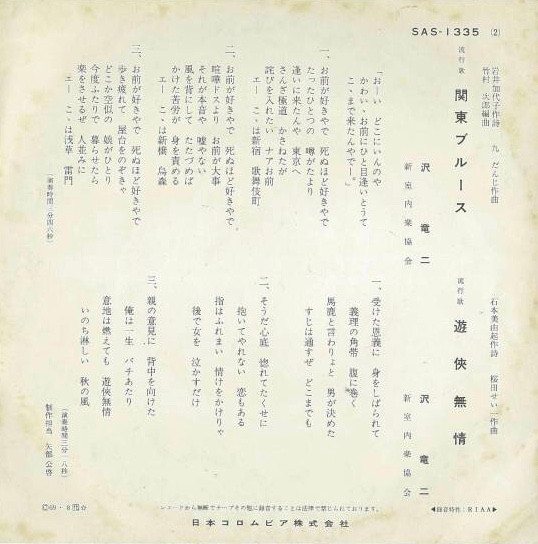 SAS-1335 (2)
岩井加代子作詩 九 だんじ作曲
竹村 次郎編曲
流行歌
関東ブルース
沢 竜二
新室内楽協会
「おーい どこにいんのや
かわいゝお前にひと目逢いとうて
こゝまで来たんやでー。」
一、お前が好きやで 死ぬほど好きやで
たったひとつの 噂がたより
逢いに来たんや 東京へ
さんざ極道 かさねたが
詫びを入れたい ナアお前
エー こゝは新宿 歌舞伎町
二、お前が好きやで 死ぬほど好きやで
喧嘩ドスより お前が大事
それが本音や 嘘やない
風を背にして たたづめば
かけた苦労が 身を責める
エー こゝは新橋 烏森
三、お前が好きやで 死ぬほど好きやで
歩き疲れて 屋台をのぞきゃ
どこか空似の 娘がひとり
今度ふたりで 暮らせたら
楽をさせるぜ 人並みに
エー こゝは浅草 雷門
石本美由起作詩 桜田せい一作曲
流行歌
遊俠無情
沢 竜二
新室内楽協会
一、受けた恩義に 身をしばられて
義理の角帯 腹に巻く
馬鹿と言わりょと 男が決めた
すじは通すぜ どこまでも
二、そうだ心底 惚れてたくせに
抱いてやれない 恋もある
指はふれまい 情けをかけりゃ
後で女を 泣かすだけ
三、親の意見に 背中を向けた
俺は一生 バチあたり
意地は燃えても 遊俠無情
いのち淋しい 秋の風
(演奏時間三分一八秒)
制作担当 矢部公啓
レコードから無断でテープその他に録音することは法律で禁じられております。
◀録音特性:RIAA▶
日本コロムビア株式会社